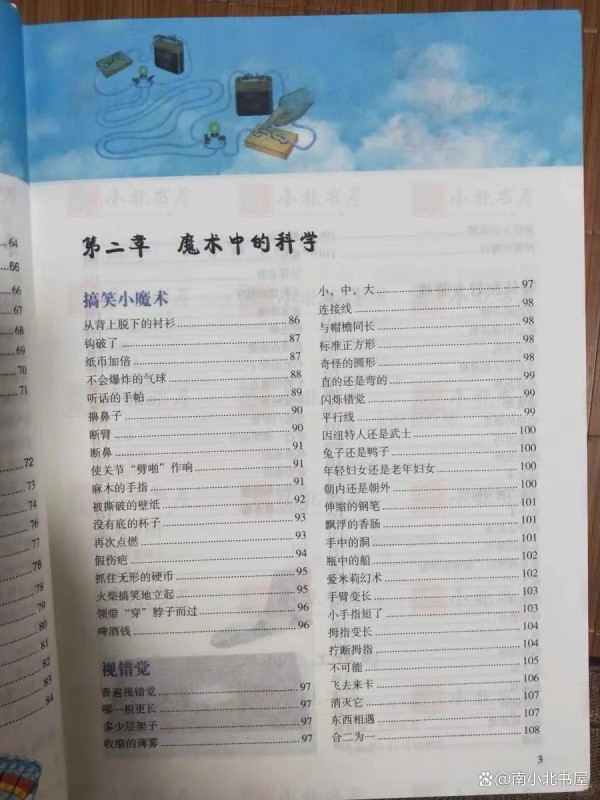 64
66
68
69
70
71
72
73
74
76
77
78
78
79
80
81
82
83
84
小北书屋
小北书屋
第二章 魔术中的科学
搞笑小魔术
从背上脱下的衬衫 86
钩破了 87
纸币加倍 87
不会爆炸的气球 88
听话的手帕 89
擤鼻子 90
断臂 90
断鼻 91
使关节“劈啪”作响 91
麻木的手指 91
被撕破的壁纸 92
没有底的杯子 93
再次点燃 93
假伤疤 94
抓住无形的硬币 95
火柴搞笑地立起 95
领带“穿”脖子而过 96
啤酒钱 96
视错觉
普遍视错觉 97
哪一根更长 97
多少层架子 97
收缩的薄雾 97
小，中，大 97
连接线 98
与帽檐同长 98
标准正方形 98
奇怪的圆形 98
直的还是弯的 99
闪烁错觉 99
平行线 99
因纽特人还是武士 100
兔子还是鸭子 100
年轻妇女还是老年妇女 100
朝内还是朝外 100
伸缩的钢笔 101
飘浮的香肠 101
手中的洞 101
瓶中的船 102
爱米莉幻术 102
手臂变长 103
小手指短了 103
拇指变长 104
拧断拇指 104
不可能 105
飞去来卡 106
消灭它 107
东西相遇 107
合二为一 108
3
@南小北书屋